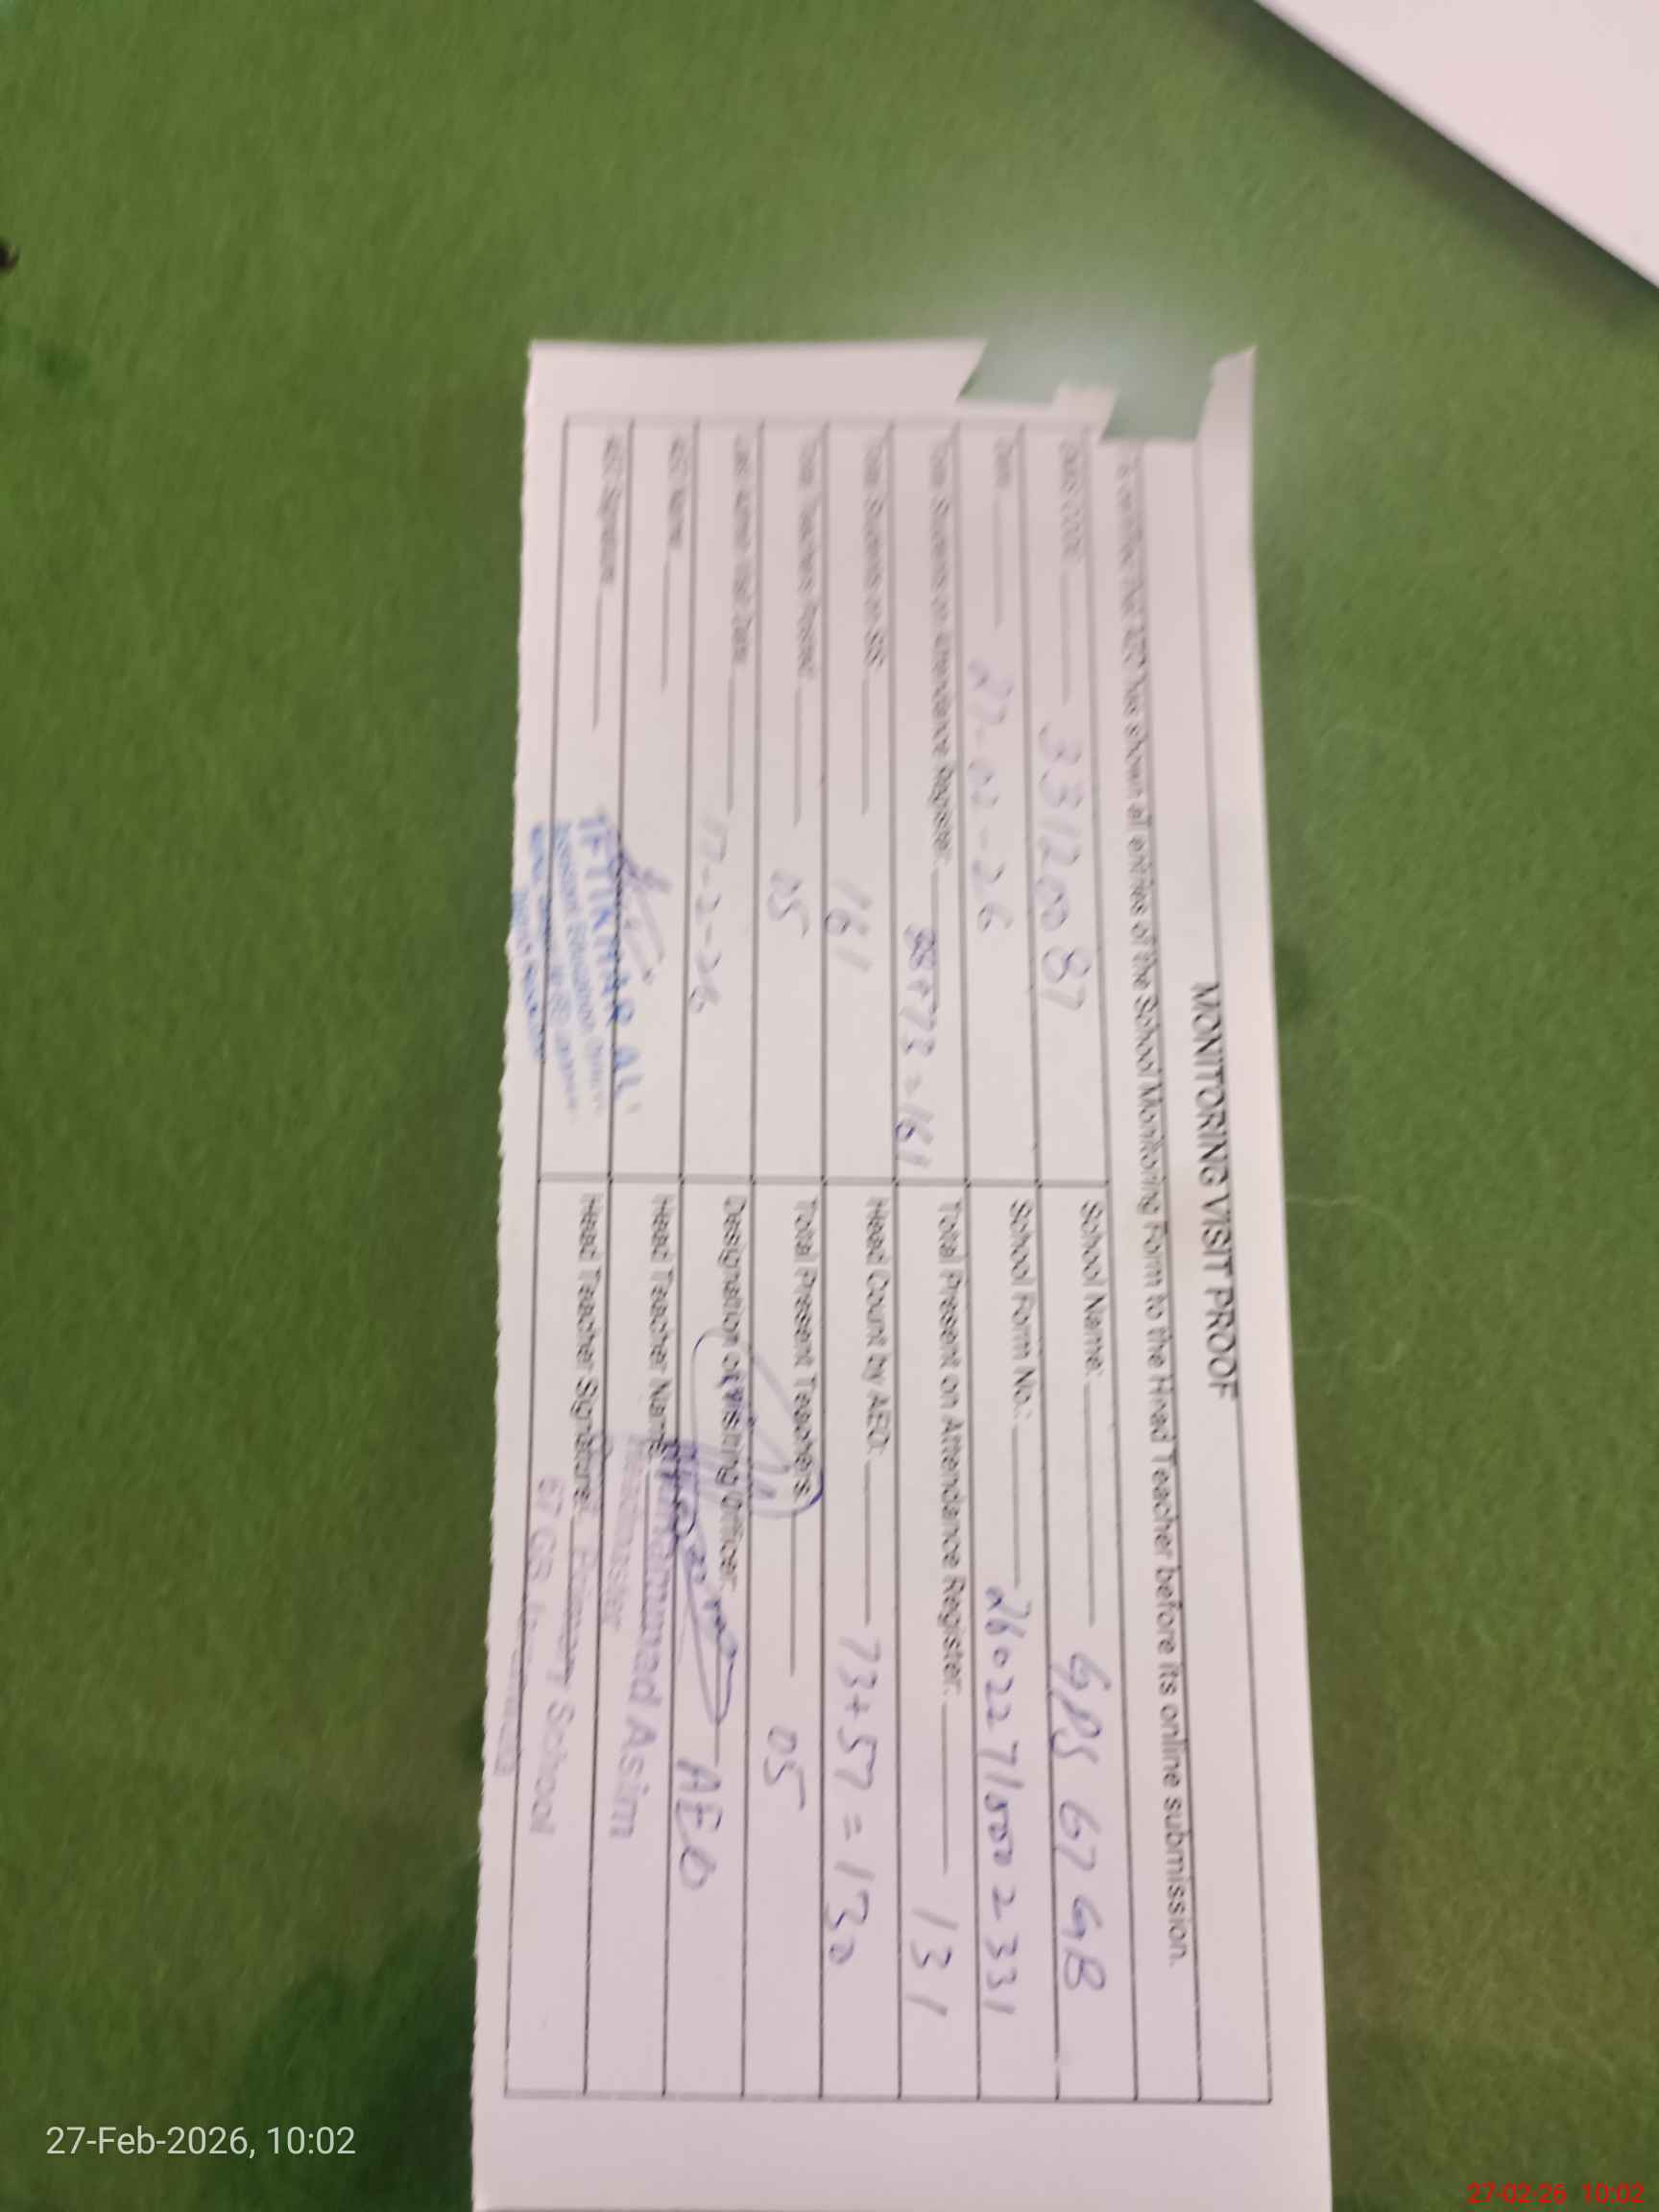 MONITORING VISIT PROOF
is certified that AEO has shown all entries of the School Monitoring Form to the Head Teacher before its online submission.
EMIS CODE: 33120087
School Name: GPS 67 GB
Date: 27-02-26
School Form No.: 260227/5002331
Total Students on Attendance Register: 88+73=161
Total Present on Attendance Register: 131
Total Students on SIS: 161
Head Count by AEO: 73+57=130
Total Teachers Posted: 05
Total Present Teachers: 05
Last Admin Visit Date: 17-2-26
Designation of Visiting Officer: AEO
AEO Name:
Head Teacher Name: Muhammad Asim
Headmaster
AEO Signature:
IFTIKHAR ALI
Assistant Education Officer
Head Teacher Signature:
Primary School
67 GB
27-Feb-2026, 10:02
27-02-26 10:02